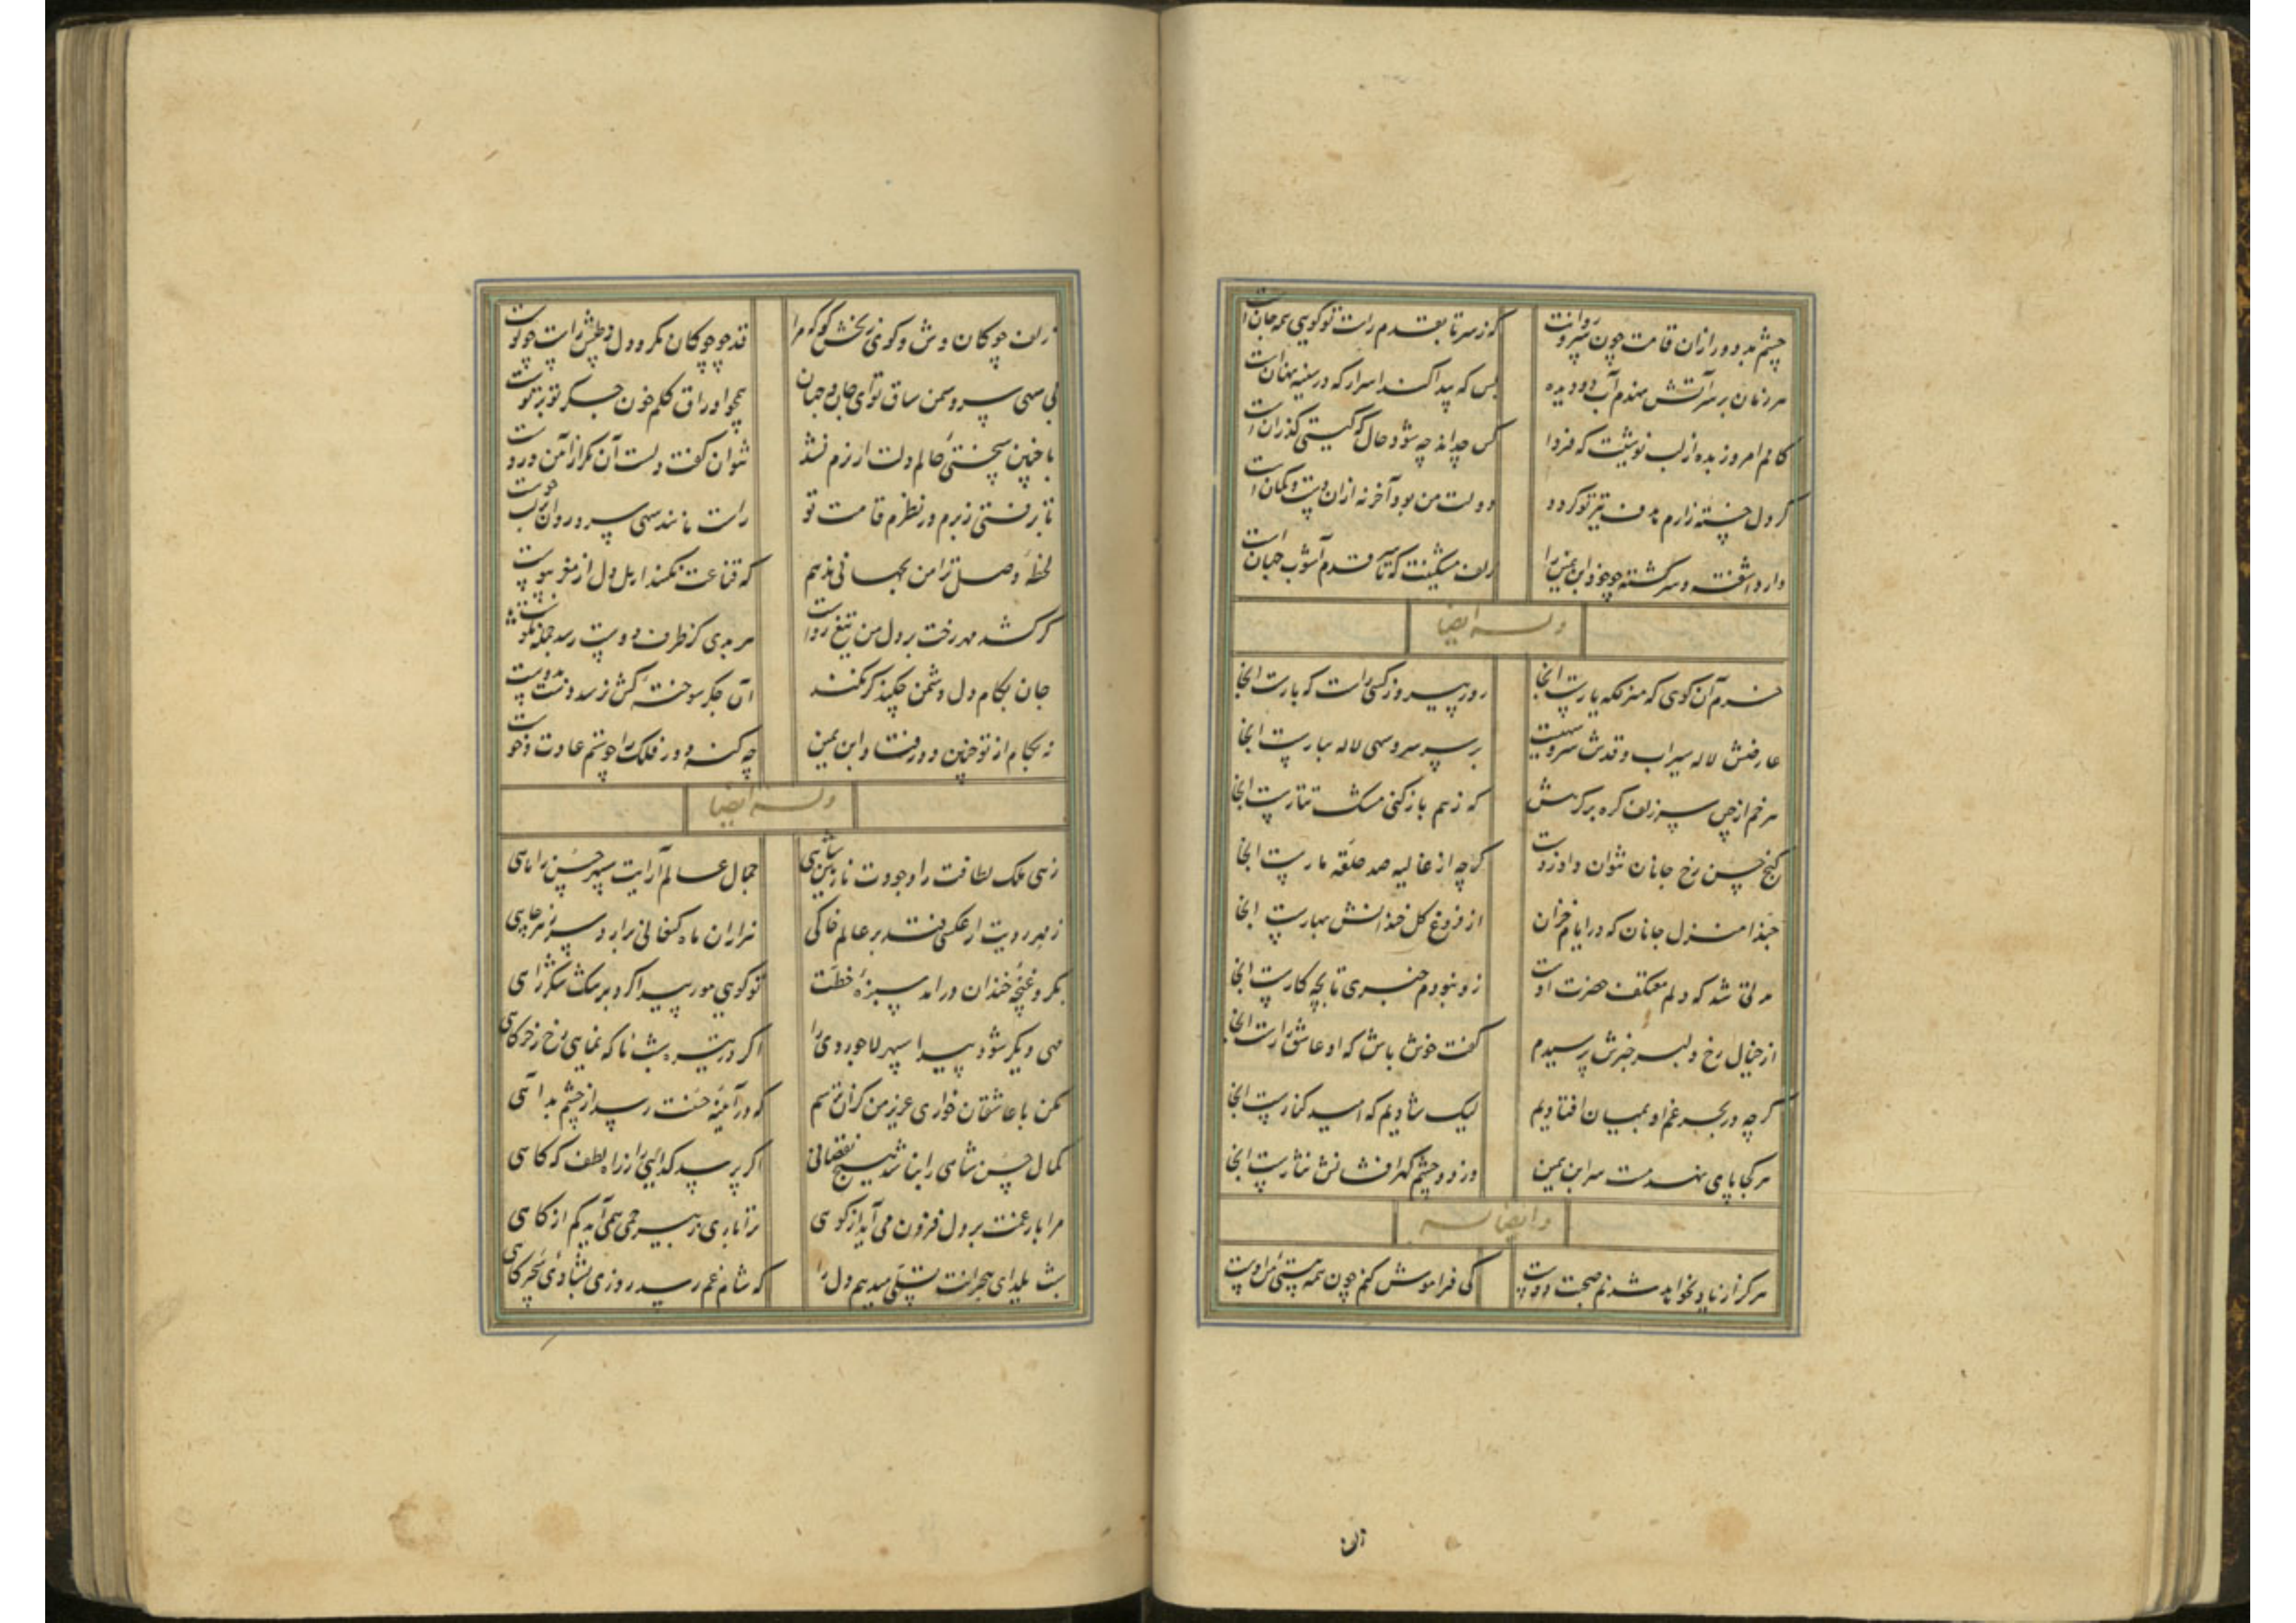 چشم بد دور ازان قامت چون سرو روانت که ز سر تا بقدم راست تو گویی همه جان است
هر زمان بر سر آتش نهدم آب دو دیده بس که پیدا کند اسرار که در سینه نهان است
کامم امروز بده از لب نوشینت که فردا کس چه داند چه شود حال که گیتی گذران است
گر دل خسته زارم هدف تیر تو گردد دولت من بود آخر نه ازان دست و کمان است
دارد آشفته و سرگشته چو خود ابن یمین را زلف مشکینت که تا سر قدم آشوب جهان است
وله ایضا
خرم آن کوی که منزلگه یارست آنجا روز پیروز کسی راست که بارست آنجا
عارضش لاله سیراب و قدش سرو سهیست بر سر سرو سهی لاله ببارست آنجا
هر خم از چین سر زلف گره بر گرهش که ز هم باز کنی مشک تتارست آنجا
گنج حسن رخ جانان نتوان داد ز دست گرچه از غالیه صد حلقه مارست آنجا
حبذا منزل جانان که در ایام خزان از فروغ گل خندانش بهارست آنجا
مدتی شد که دلم معتکف حضرت اوست زو نبودم خبری تا بچه کارست آنجا
از خیال رخ دلبر خبرش پرسیدم گفت خوش باش که او عاشق زارست آنجا
گرچه در بحر غم او بمیان افتادیم لیک شادیم که امید کنارست آنجا
هر کجا پای نهد مست سر ابن یمین وز دو چشم گهرافشانش نثارست آنجا
و ایضا له
هرگز از یاد نخواهد شدنم صحبت دوست کی فراموش کنم چون همه هستی من اوست
زلف
زلف چوکان وش و کوی زنخش کو که مرا قد چو چوکان مکر و دل ز طپش راست چو کوست
بی سهی سرو سمن ساق تو ای جان و جهان همچو اوراق گلم خون جگر تو بر توست
با چنین سختی عالم دلت ار نرم نشد نتوان گفت دلست آن مگر از آهن و روست
تا برفتی ز برم در نظرم قامت تو راست مانند سهی سرو روان بر لب جوست
لحظه وصل ترا من بجهانی ندهم که قناعت نکند اهل دل از مغز بپوست
گر کشد مهر رخت بر دل من تیغ رواست هر بدی کز طرف دوست رسد جمله نکوست
جان بکام دل دشمن چکند گر نکند آن جگر سوخته کش نرسد دست بدوست
نه بکام از تو چنین دور فتاد ابن یمین چه کند دور فلک را چو ستم عادت و خوست
وله ایضا
زهی ملک لطافت را وجودت نازنین شاهی جمال عالم آرایت سپهر حسن را ماهی
ز مهر رویت ار عکسی فتد بر عالم خاکی هزاران ماه کنعانی برآرد سر ز هر چاهی
بگرد غنچه خندان درآمد سبزه خطت تو گویی مور پیدا کرد بر مشک شکر راهی
مهی دیگر شود پیدا سپهر لاجوردی را اگر در تیره شب ناگه نمایی رخ ز خرگاهی
مکن با عاشقان خواری عزیز من کزان ترسم که در آیینه حسنت رسد از چشم بد آهی
کمال حسن شاهی را نباشد هیچ نقصانی اگر پرسد گدایی را ز راه لطف که گاهی
مرا بار غمت بر دل فزون می آید از کوهی ترا باری ز بیرحمی همی آید کم از کاهی
شب یلدای هجرانت تسلی میدهم دل را که شام غم رسد روزی بشادی سحرگاهی